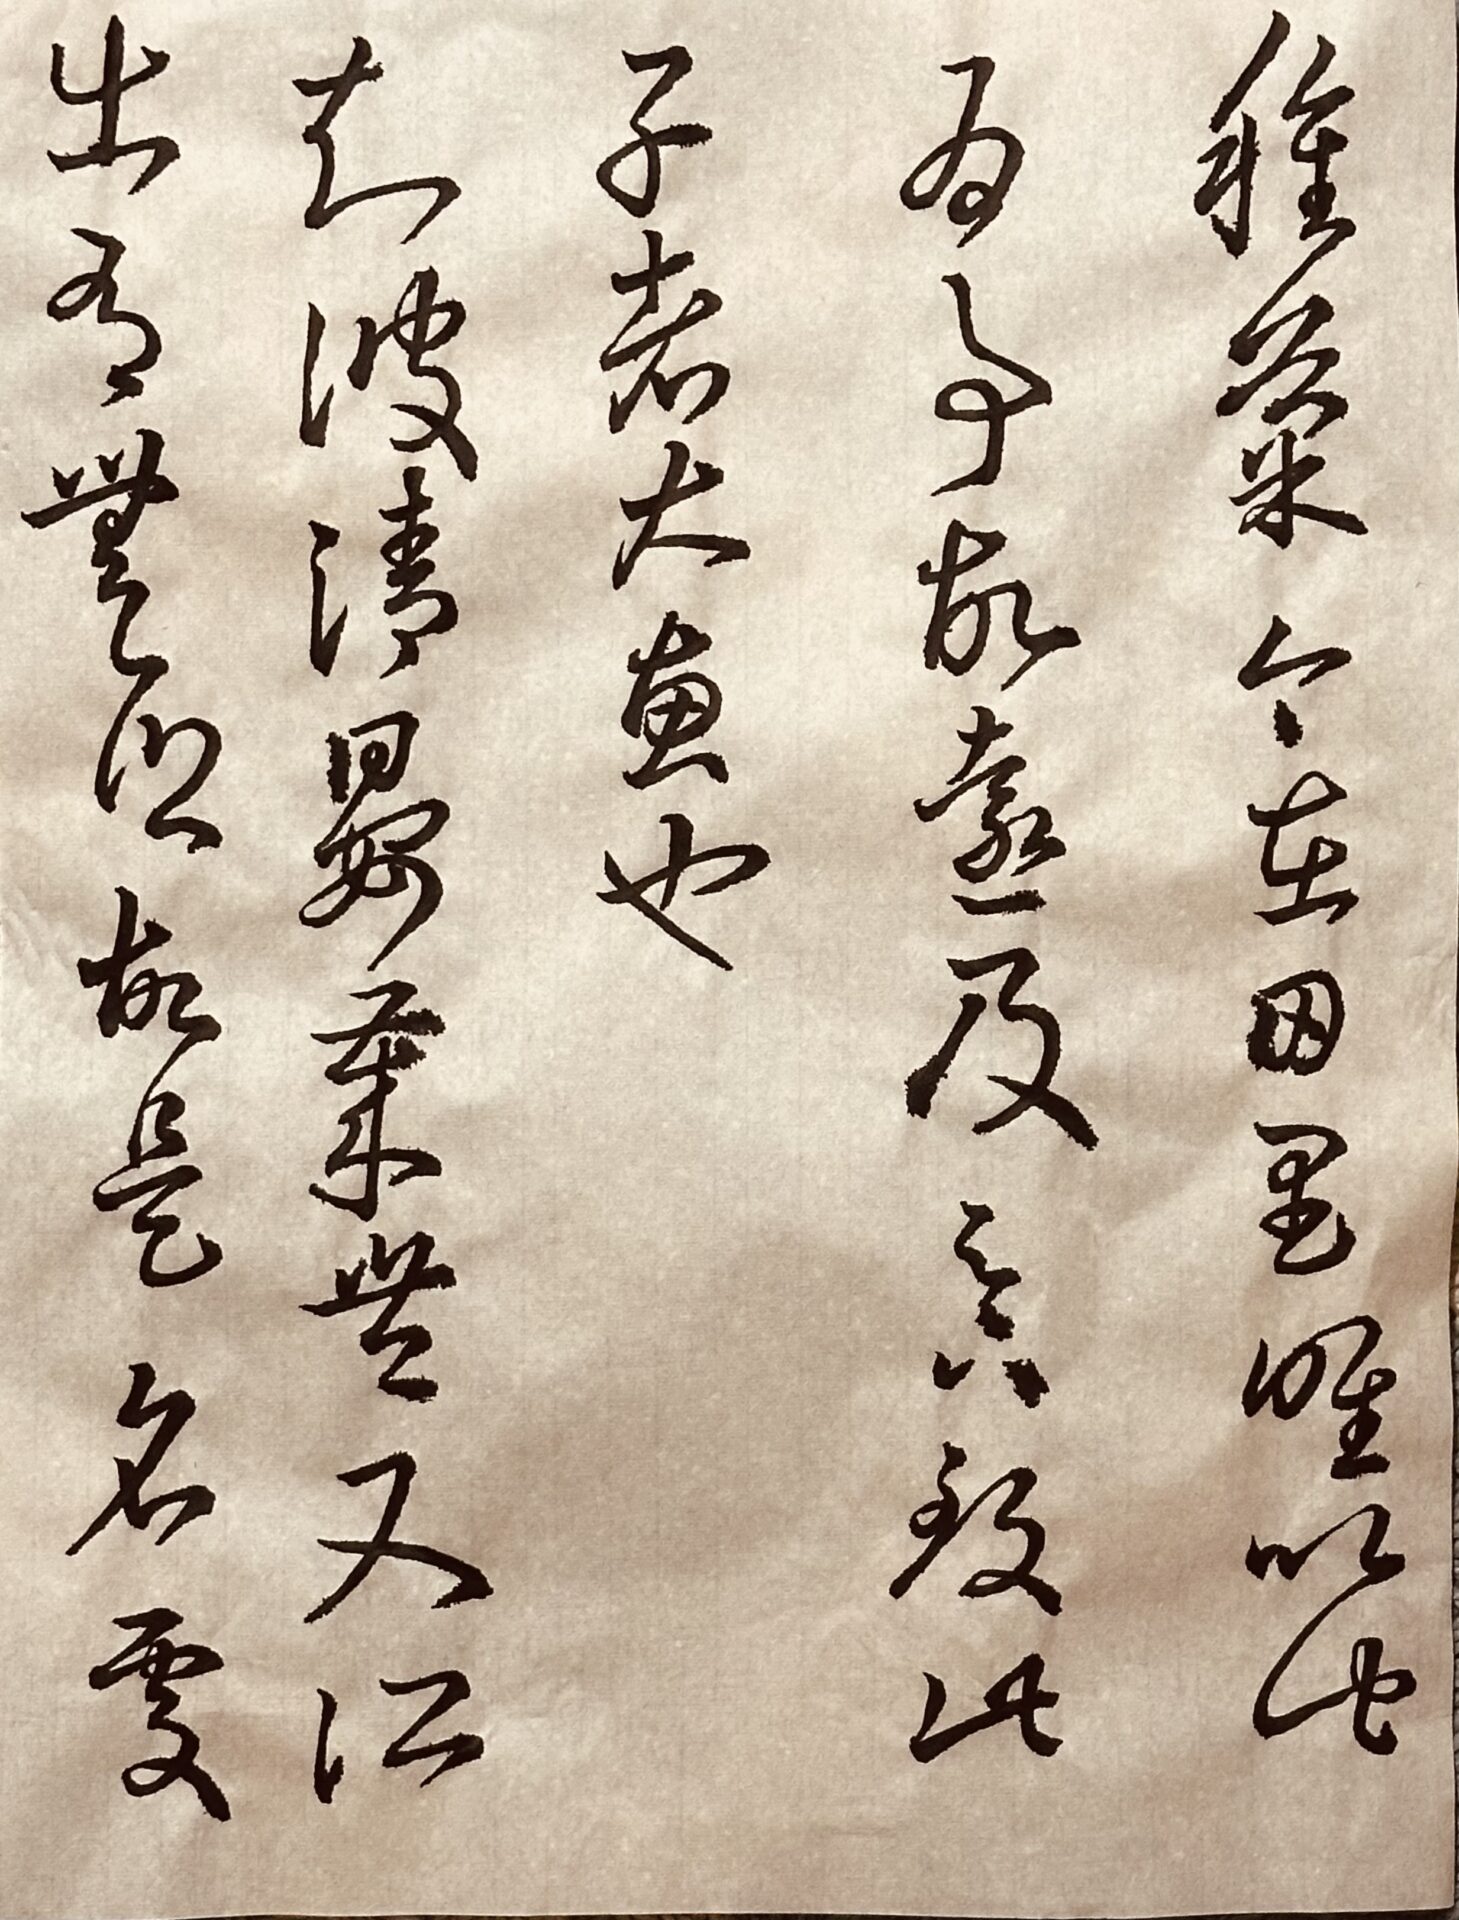 種菓今在田里唯以此
為事故遠及足下致此
子者大惠也
知彼清晏歲豐又所
出有無鄉故是名處